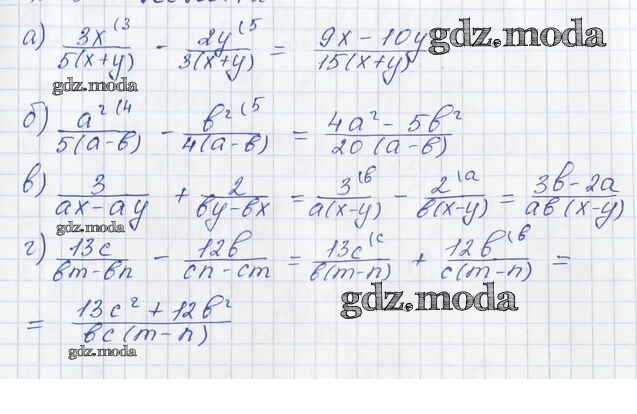 а) 3x(3 / 5(x+y) - 2y(5 / 3(x+y) = 9x - 10y / 15(x+y)
gdz.moda
gdz.moda
б) a²(4 / 5(a-b) - b²(5 / 4(a-b) = 4a² - 5b² / 20(a-b)
в) 3 / ax-ay + 2 / by-bx = 3(b / a(x-y) - 2(a / b(x-y) = 3b-2a / ab(x-y)
gdz.moda
г) 13c / bm-bn - 12b / cn-cm = 13c(c / b(m-n) + 12b(b / c(m-n) =
gdz.moda
= 13c² + 12b² / bc(m-n)
gdz.moda